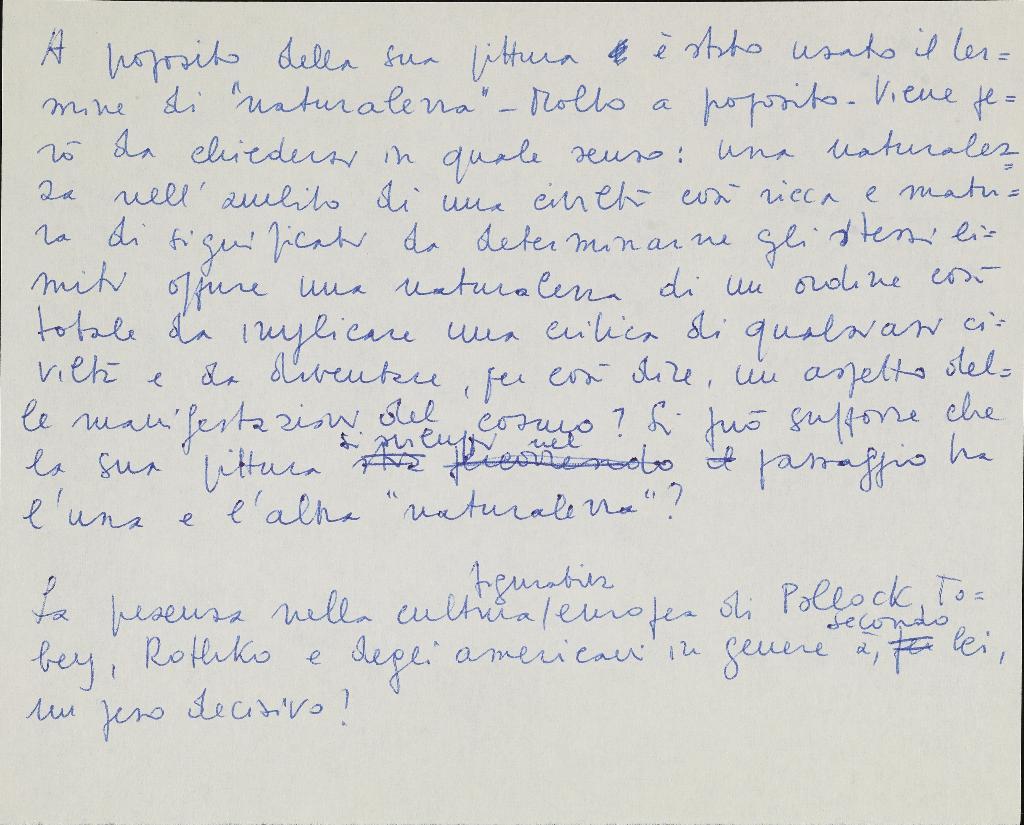 A proposito della sua pittura è stato usato il ter=
mine di "naturalezza" - Molto a proposito - Viene pe=
rò da chiedersi in quale senso: una naturalez=
za nell'ambito di una civiltà così ricca e matu=
ra di significati da determinarne gli stessi li=
miti oppure una naturalezza di un ordine così
totale da implicare una critica di qualsiasi ci=
viltà e da diventare, per così dire, un aspetto del=
le manifestazioni del cosmo? Si può supporre che
si sviluppi nel
la sua pittura stia percorrendo il passaggio tra
l'una e l'altra "naturalezza"?
figurativa
La presenza nella cultura/europea di Pollock, To=
secondo
bey, Rothko e degli americani in genere à, per lei,
un peso decisivo?